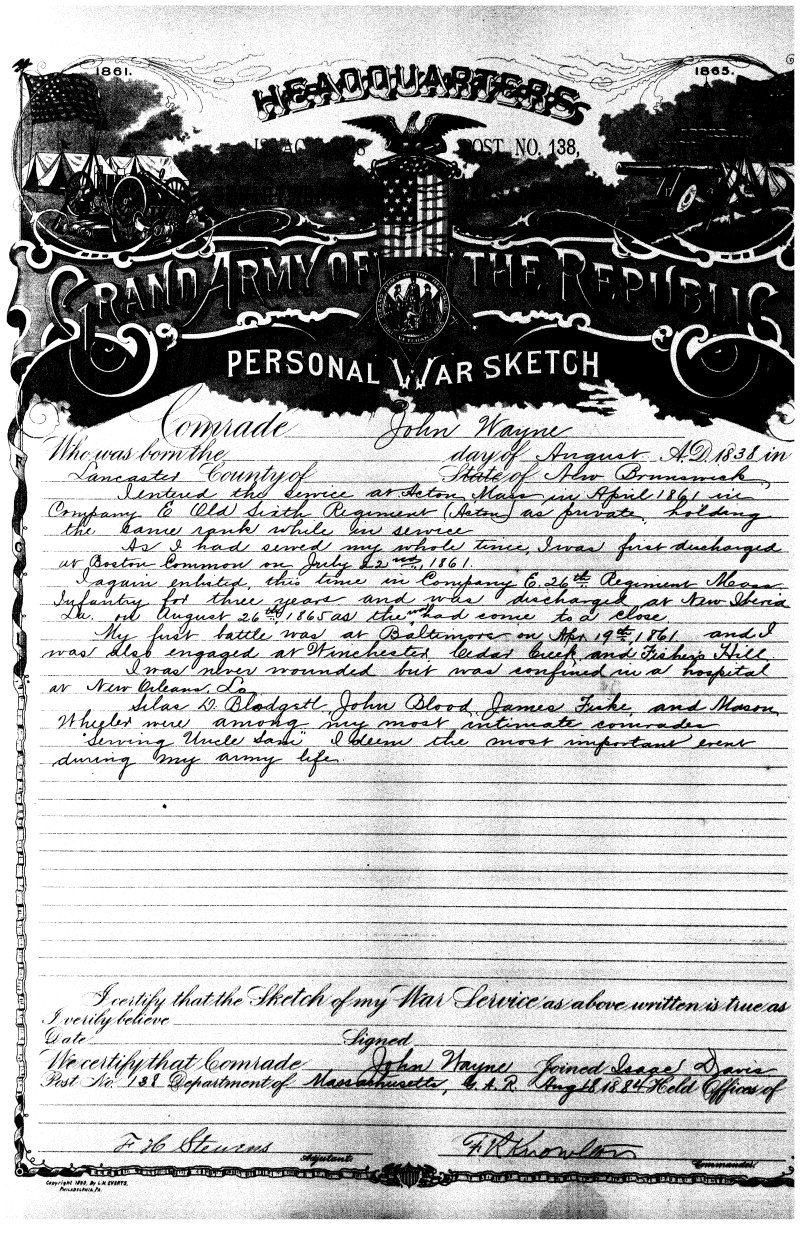 1861.
1865.
HEADQUARTERS
POST NO. 138,
GRAND ARMY OF THE REPUBLIC
PERSONAL WAR SKETCH
Comrade John Wayne
Who was born the day of August A.D. 1838 in
Lancaster County of State of New Brunswick
I entered the service at Acton, Mass in April 1861 in
Company E Old Sixth Regiment (Acton) as private, holding
the same rank while in service
As I had served my whole time, I was first discharged
at Boston Common on July 22nd, 1861.
I again enlisted, this time in Company E. 26th Regiment Mass
Infantry for three years and was discharged at New Iberia
La. on August 26th, 1865 as the war had come to a close
My first battle was at Baltimore on Apr. 19th 1861 and I
was also engaged at Winchester, Cedar Creek, and Fishers Hill.
I was never wounded but was confined in a hospital
at New Orleans, La
Silas D. Blodgett John Blood, James Fiske, and Mason
Wheeler were among my most intimate comrades
"Serving Uncle Sam" I deem the most important event
during my army life
I certify that the Sketch of my War Service as above written is true as
I verily believe
Date Signed
We certify that Comrade John Wayne Joined Isaac Davis
Post No. 138 Department of Massachusetts, G.A.R. Aug 18 1884 Held Offices of
F H Stevens Adjutant. F R Knowlton Commander.
Copyright 1890, By L.H. EVERTS,
PHILADELPHIA, PA.